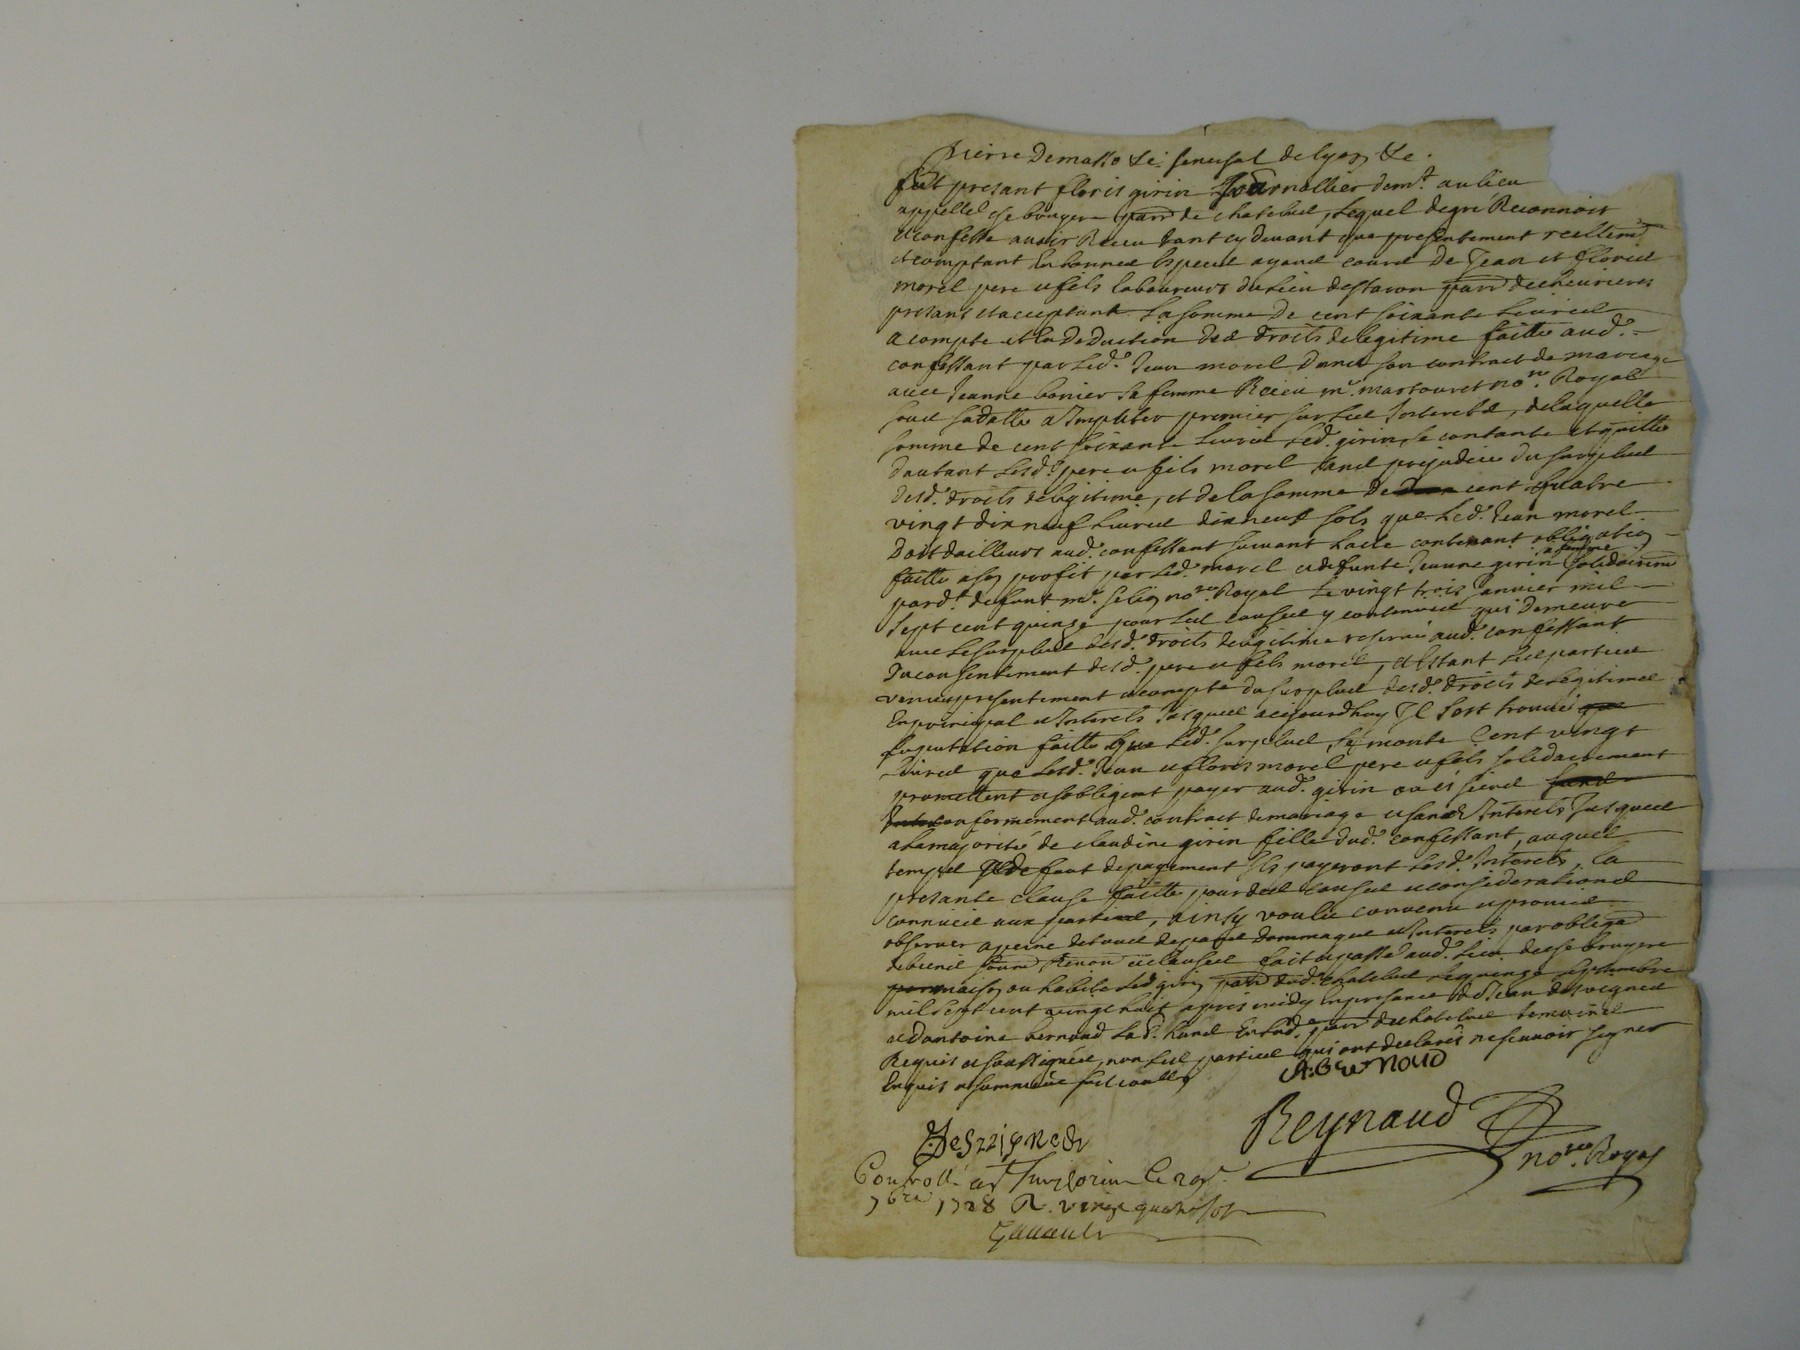 Pierre Demasso Sei. senechal de lyon &c.
fut presant floris girin Journallier demt. au lieu
appellé de bruyere parr de chatelus, lequel de gré Reconnoit
et confesse avoir Receu tant cy devant que presentement reellemt
et comptant En bonnes Especes ayant cours de Jean et floris
morel pere et fils laboureurs du lieu destaron parr de chevrieres
presans et acceptant La somme de cent soixante Livres
a compte et en deduction des droits de legitime faitte aud.
confessant par led. Jean morel dans son contract de mariage
avec Jeanne bonier sa femme Receu me. nore. Royal
sous sa datte a Imputer premier sur les Interets, de laquelle
somme de cent soixante Livres led. girin se contante et quitte
dautant lesd. pere et fils morel sans prejudice du surplus
desd. droits de legitime, et de la somme de cent quatre
vingt dix neuf Livres dix neuf sols que led. Jean morel
doit dailleurs aud. confessant suivant lacte contenant obligation
faitte a son profit par led. morel et defunte Jeanne girin sa femme solidairemt
pard.t defunt me. nore. Royal le vingt trois Janvier mil
sept cent quinze pour les causes y contenues qui demeure
avec le surplus desd. droits de legitime reservé aud. confessant
du consentement desd. pere et fils morel, et Estant les parties
venues presentement a compte du surplus desd. droits de legitime
En principal et Interets Jusques aujourdhuy Il sest trouvé
suputation faitte que led. surplus se monte Cent vingt
Livres que lesd. Jean et floris morel pere et fils solidairement
promettent et sobligent payer aud. girin ou es siens
conformement aud. contract de mariage et sans Interets Jusques
a la majorité de claudine girin fille dud. confessant, auquel
temps et de faut de payement Ils payeront lesd. Interets, la
presante clause faitte pour des causes et considerations
connues aux parties, ainsy voulu convenu et promis
observer a peine de tous depans dommages et Interets par obliga
de biens soum. Renon et clauses fait et passé aud. lieu de bruyere
maison ou habite led girin parr dud. chatelus le quinze septembre
mil sept cent vingt huit apres midy En presance de Jean desvignes
et dantoine bernaud parr de chatelus temoins
Requis et soussignés, non les parties qui ont declarés ne scavoir signer
Enquis et sommés
A. Bernaud
Desvignes
Reynaud
nore. Royal
Controllé a St Simphorien le
7bre 1728 R. vingt quatre sols